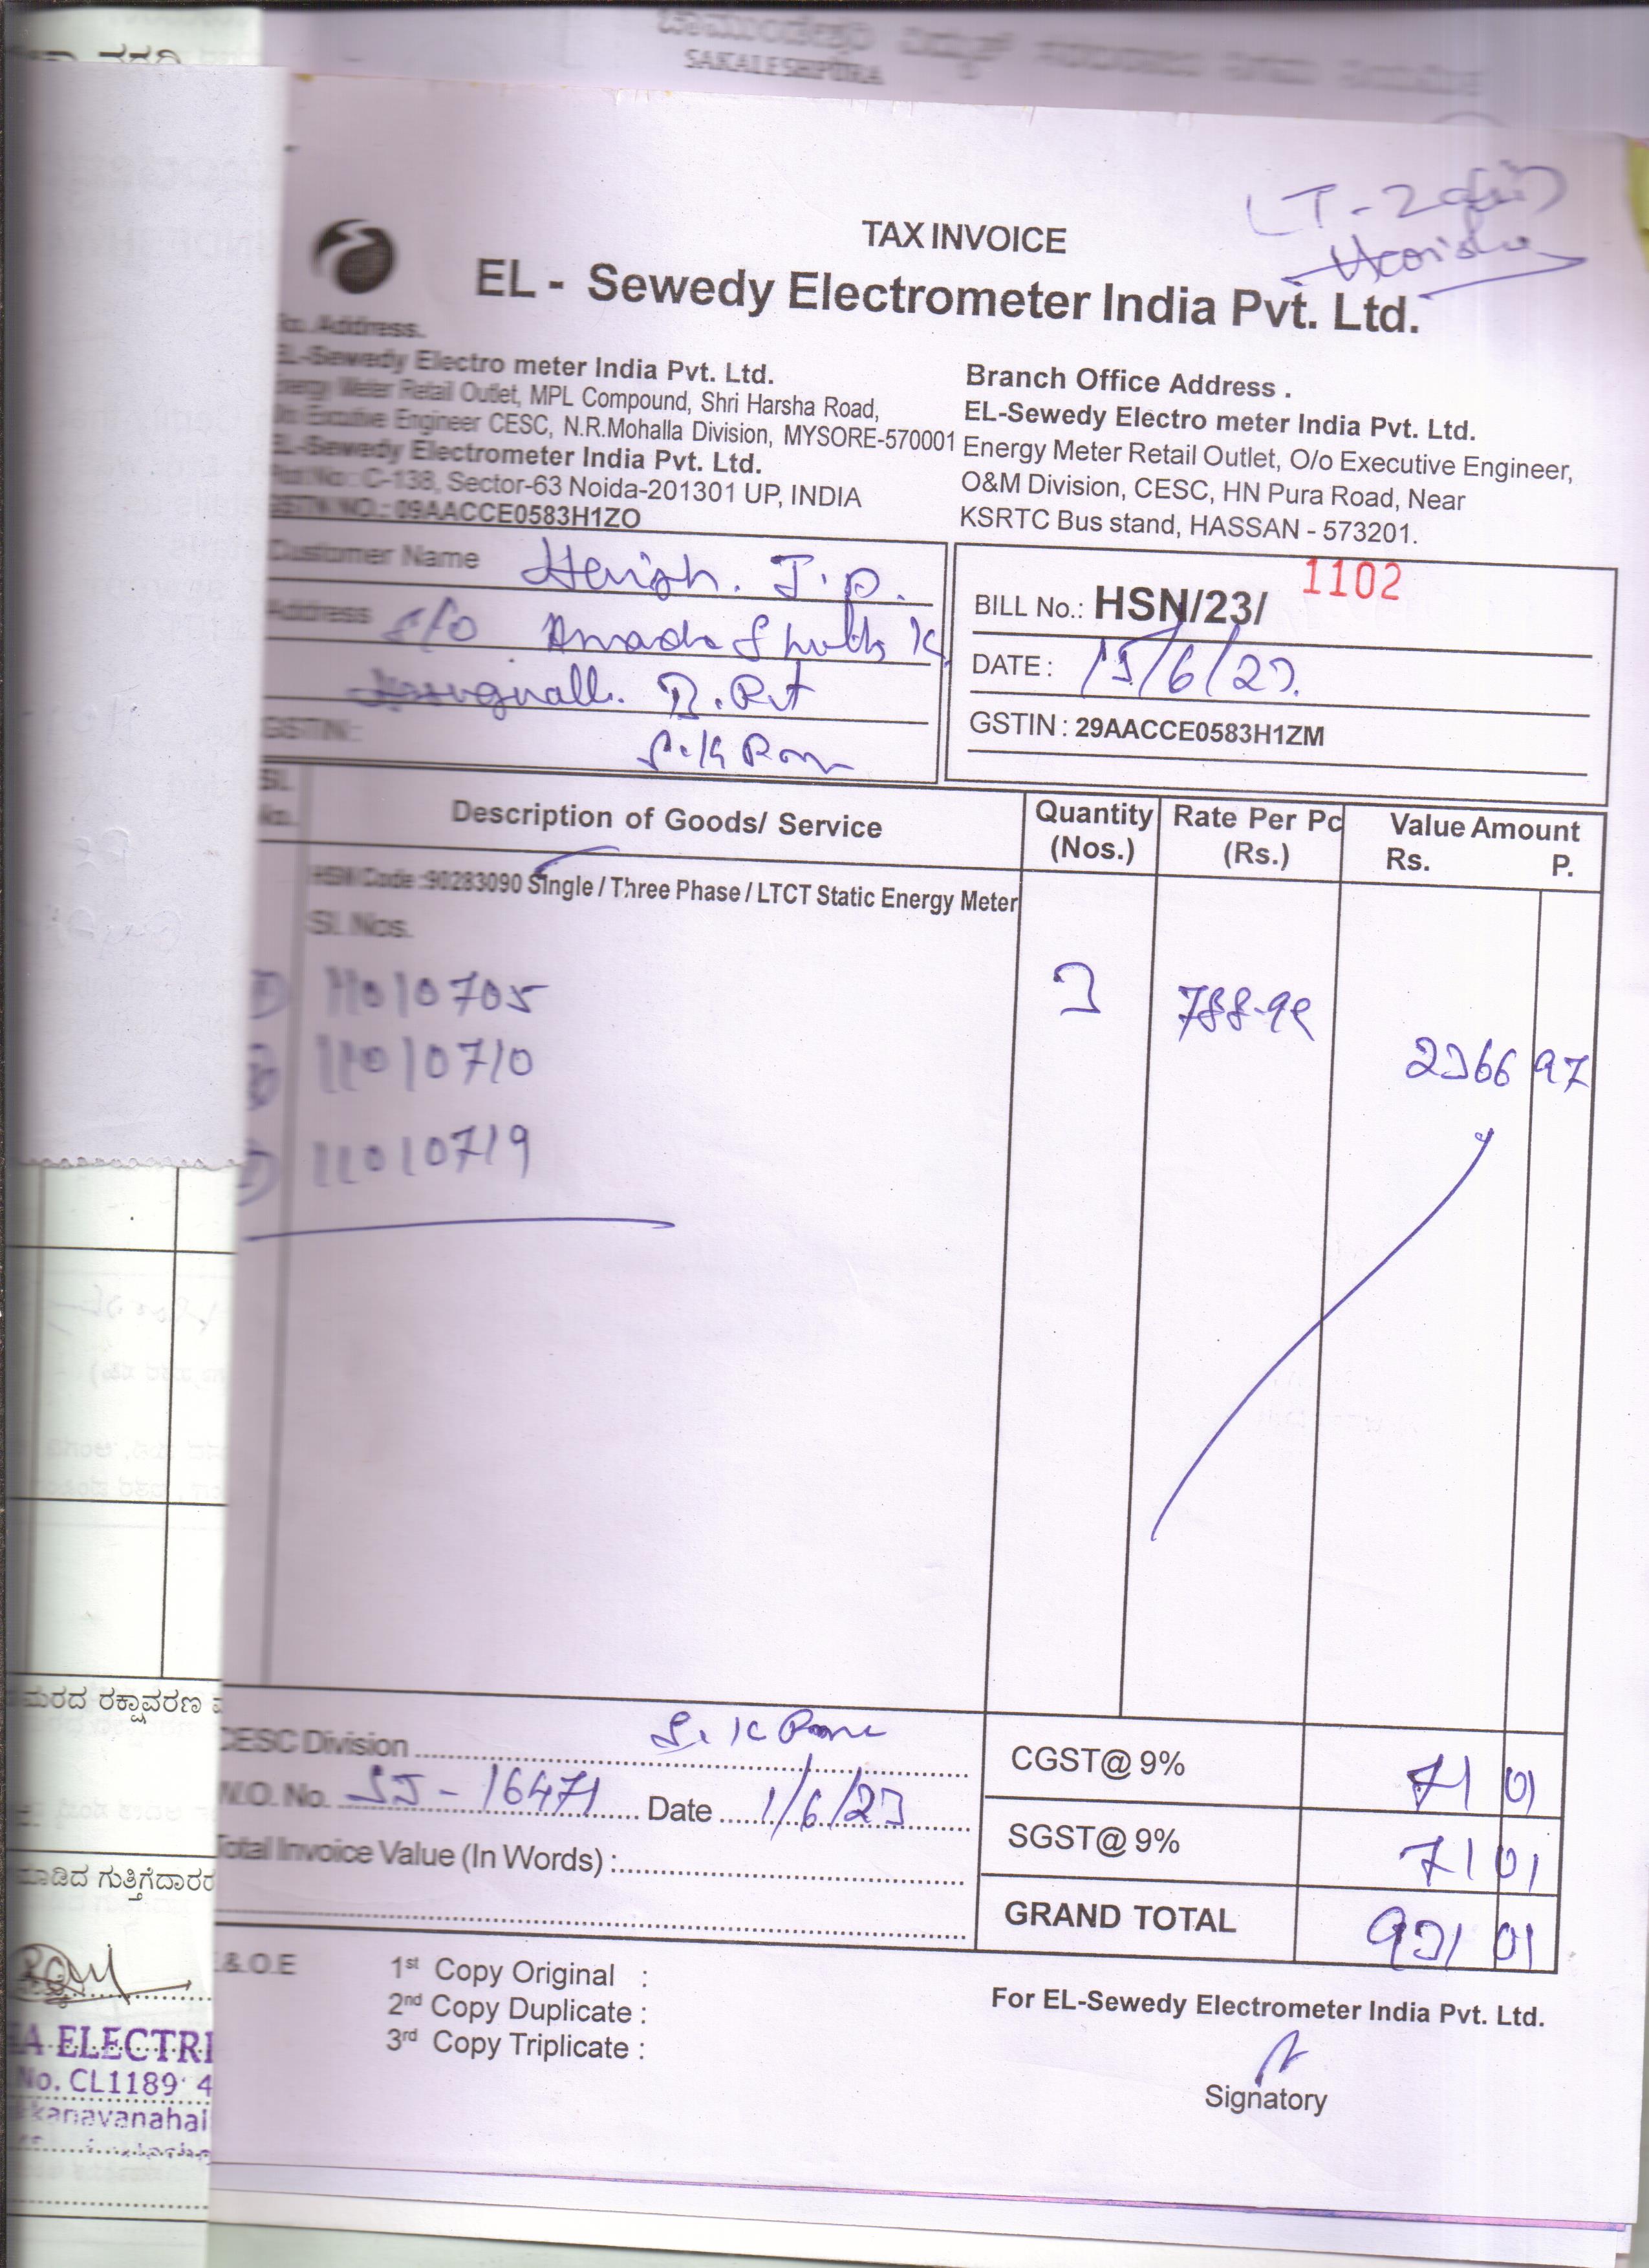 SAKALESHPURA
LT-2
Harisha
TAX INVOICE
EL - Sewedy Electrometer India Pvt. Ltd.
Address.
EL-Sewedy Electro meter India Pvt. Ltd.
Energy Meter Retail Outlet, MPL Compound, Shri Harsha Road,
Executive Engineer CESC, N.R.Mohalla Division, MYSORE-570001
EL-Sewedy Electrometer India Pvt. Ltd.
C-138, Sector-63 Noida-201301 UP, INDIA
GSTIN NO.: 09AACCE0583H1ZO
Branch Office Address .
EL-Sewedy Electro meter India Pvt. Ltd.
Energy Meter Retail Outlet, O/o Executive Engineer,
O&M Division, CESC, HN Pura Road, Near
KSRTC Bus stand, HASSAN - 573201.
Customer Name Harish. J.P.
Address S/O
GSTIN:
BILL No.: HSN/23/ 1102
DATE : 15/6/23.
GSTIN : 29AACCE0583H1ZM
Sl. No. Description of Goods/ Service Quantity (Nos.) Rate Per Pc (Rs.) Value Amount Rs. P.
HSN Code :90283090 Single / Three Phase / LTCT Static Energy Meter
Sl. Nos.
11010705 3 788-99
11010710 2366 97
11010719
CESC Division
W.O. No. SJ - 16471 Date 1/6/23
Total Invoice Value (In Words) :
CGST@ 9% 71 01
SGST@ 9% 71 01
GRAND TOTAL 931 01
E.& O.E
1st Copy Original :
2nd Copy Duplicate :
3rd Copy Triplicate :
For EL-Sewedy Electrometer India Pvt. Ltd.
Signatory
ಮರದ ರಕ್ಷಾವರಣ
ಮಾಡಿದ ಗುತ್ತಿಗೆದಾರರ
ELECTRI
No. CL1189 4
kkanavanahal